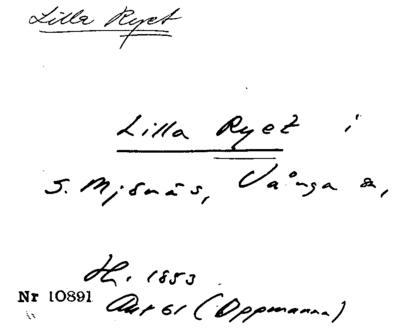 Lilla Ryet
Lilla Ryet i
S. Mjönäs, Vånga sn,
Hf. 1853
Nr 10891
Avt 61 (Oppmanna)